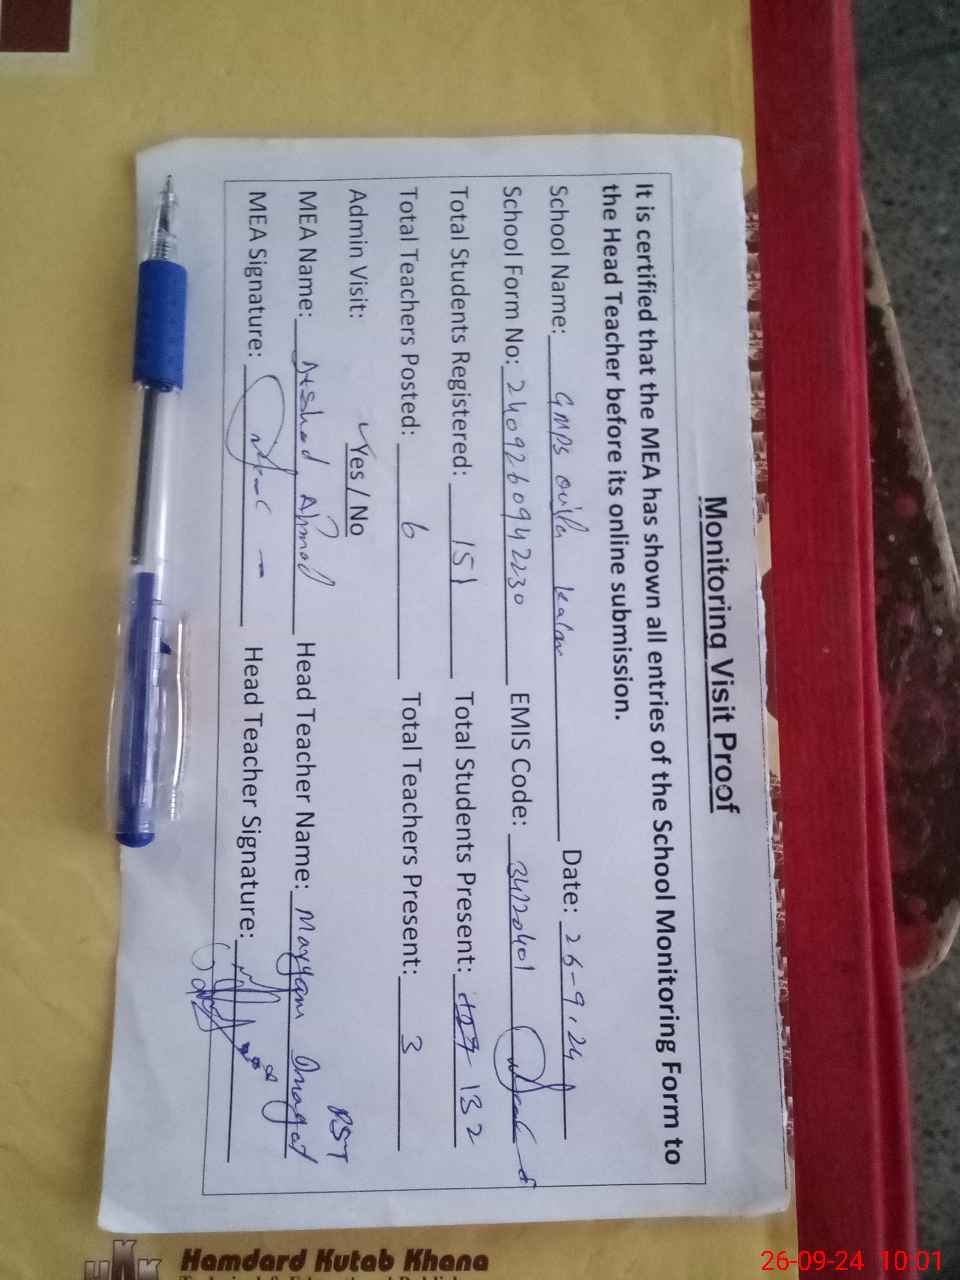 Monitoring Visit Proof
It is certified that the MEA has shown all entries of the School Monitoring Form to
the Head Teacher before its online submission.
School Name: GMPS Date: 26-9-24
School Form No: 2409260942230 EMIS Code: 34120401
Total Students Registered: 151 Total Students Present: 132
Total Teachers Posted: 6 Total Teachers Present: 3
Admin Visit: ✓Yes / No PST
MEA Name: Arshad Ahmad Head Teacher Name: Maryam
MEA Signature: Head Teacher Signature:
HKK Hamdard Kutab Khana
26-09-24 10:01